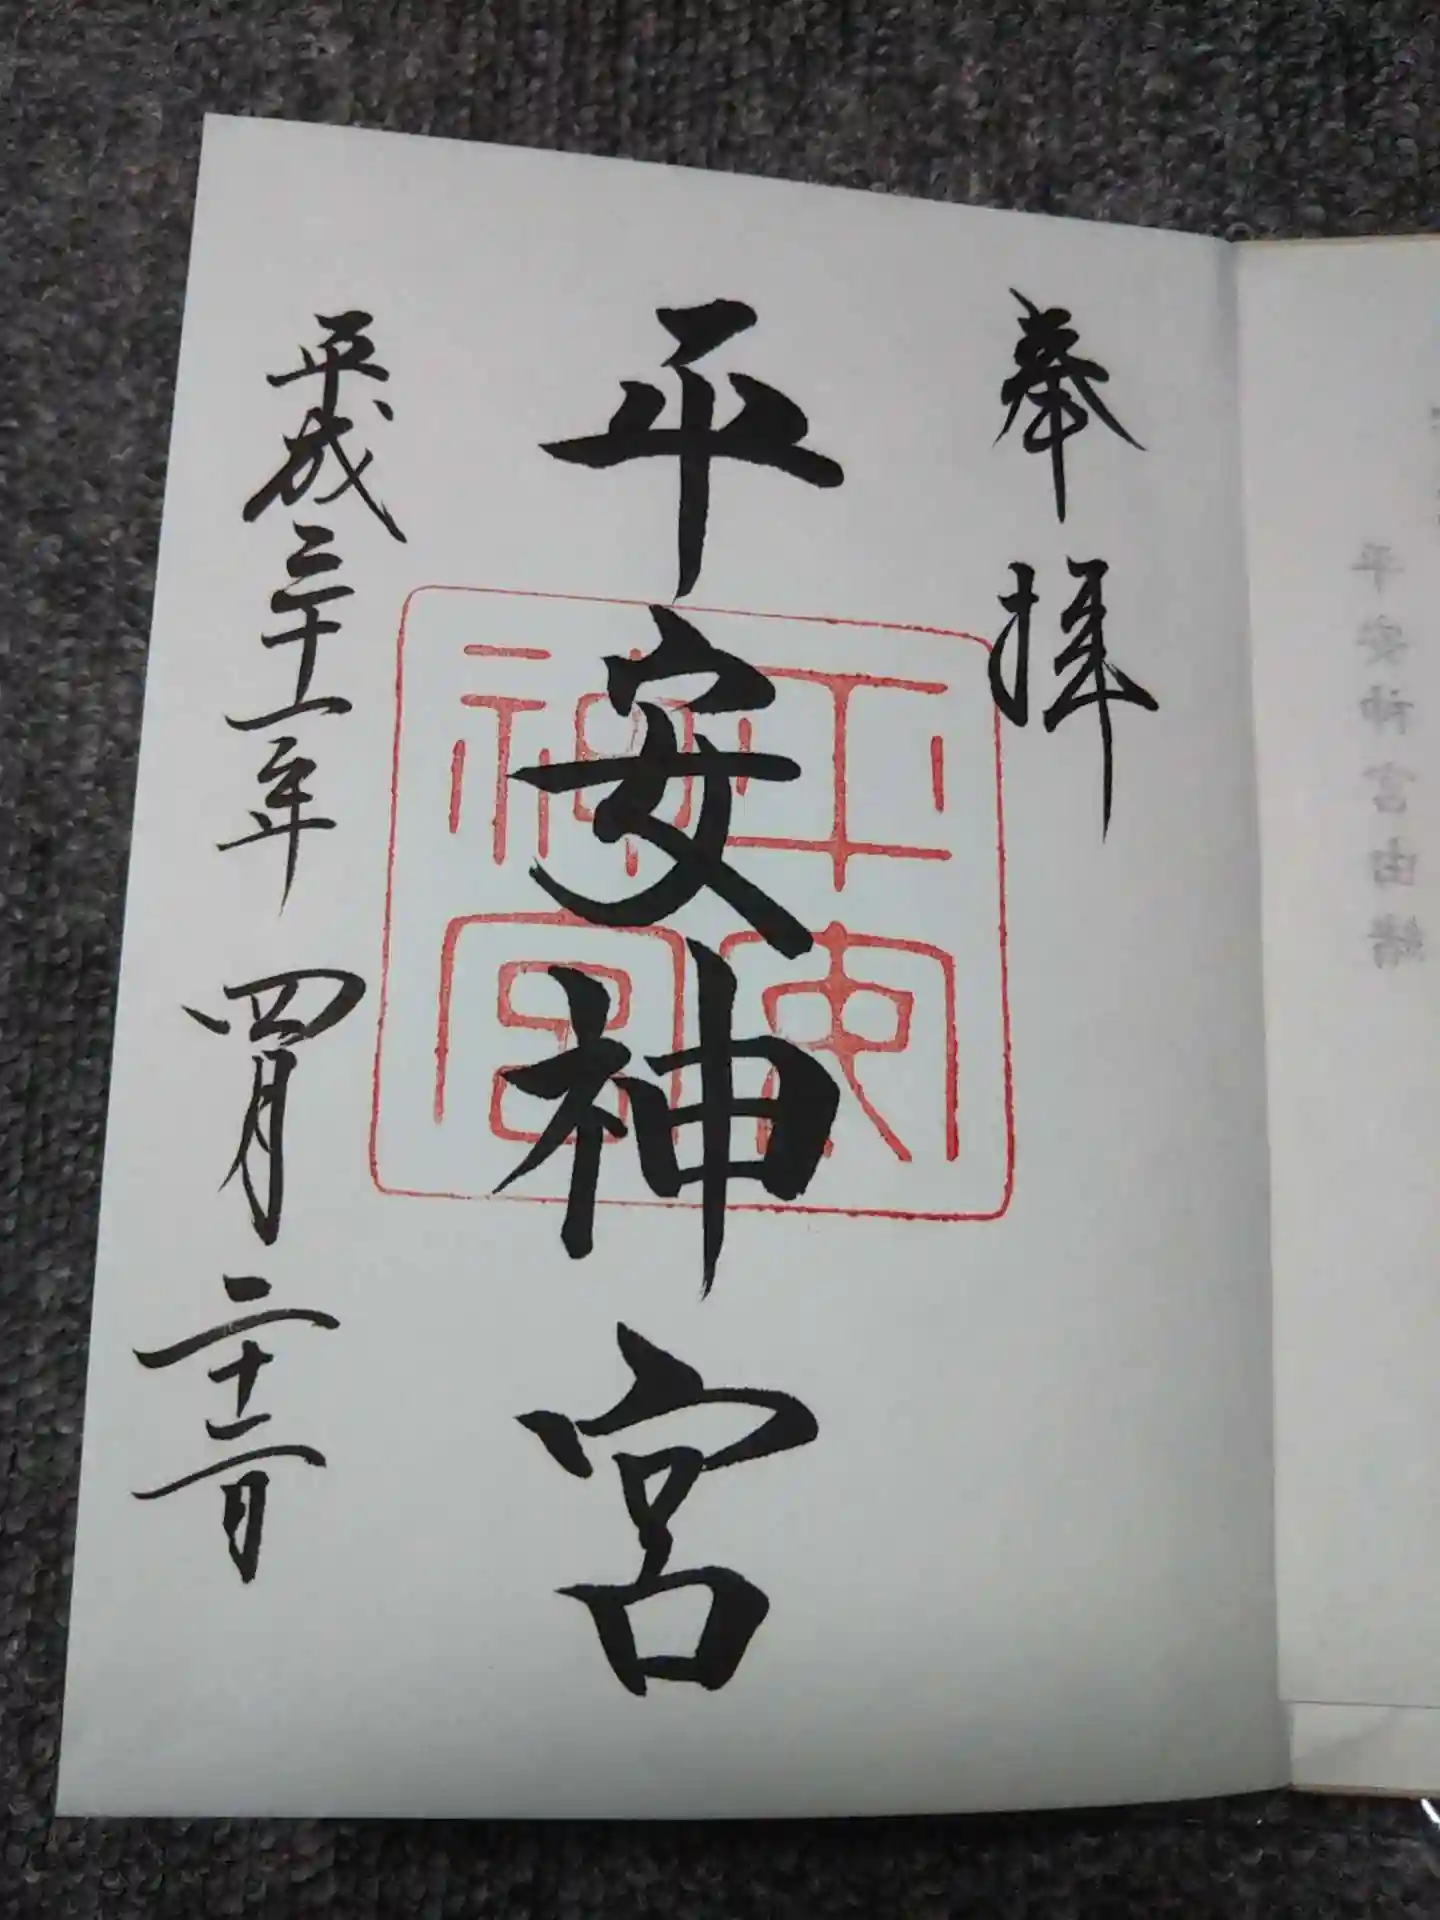 平安神宮由緒
奉拝
平安神宮
平安神宮
平成三十一年四月二十二日